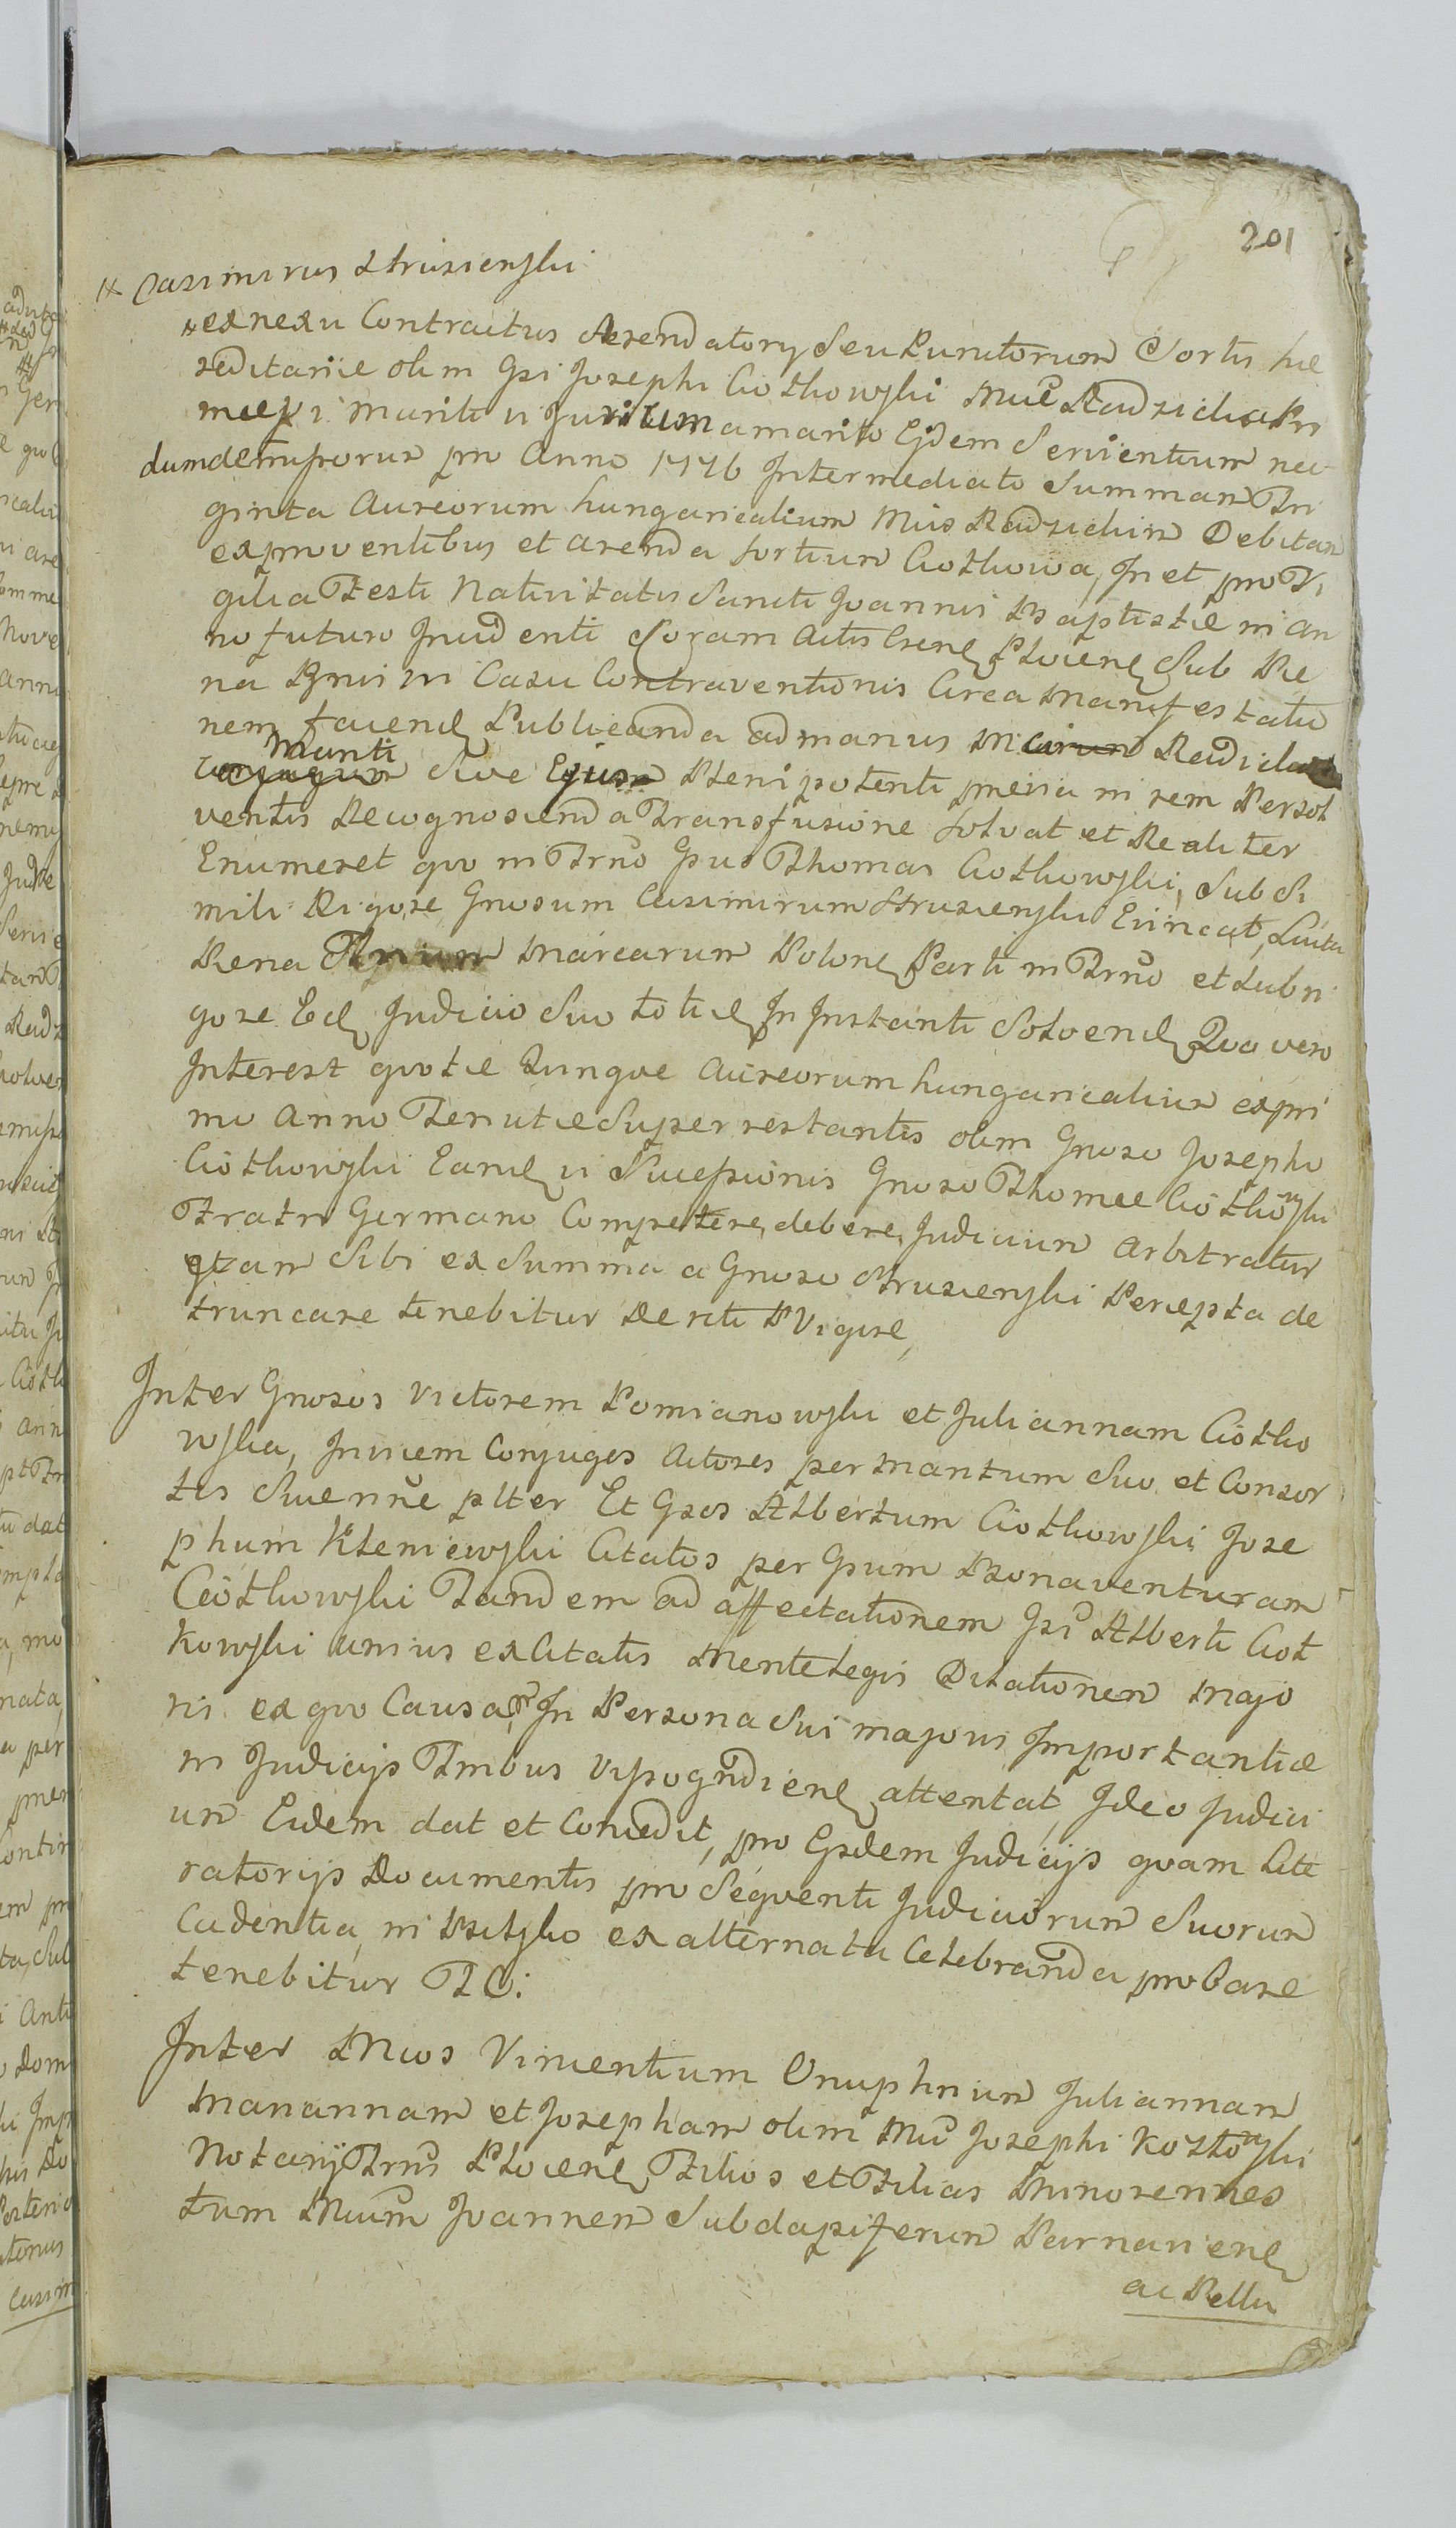 201
Casimirus Strusienski
ex nexu Contractus Arendatorij Seu Punctorum Sortis hæ
reditariæ olim Gsi Josephi Ciołkowski Mcæ Radzicka Pri
mæ vi Mariti ii Juri cum a marito Ejdem Servientium nec
dum de tempore pro Anno 1776 Intermediato Summam Tri
ginta Aureorum hungaricalium Mcis Radzickim Debitam
ex proventibus et arenda sortium Ciołkowa, In et pro Vi
gilia Festi Nativitatis Sancti Joannis Baptistæ in an
no futuro Incidenti Coram Actis Crens Plocens Sub Pæ
na Bnnis in Casu Contraventionis Circa Manifestatio
nem faciens Publicanda ad manus Radzick
Mariti
sive Ejus Plenipotenti prævia in rem Persol
ventis Recognoscenda Transfusione solvat et Realiter
Enumeret quo in Trno Gsus Thomas Ciołkowski, Sub Si
mili Rigore Gnosum Casimirum Strusienski Evincat, Luita
Pæna Marcarum Polons Parti in Trno et sub ri
gore Eod Judicio Suo toties In Instanti Solvens Qua vero
Interest quotæ Quinque Aureorum hungaricalium ex pri
mo Anno Tenutæ Superrestantis olim Gnoso Josepho
Ciołkowski Eand vi Successionis Gnoso Thomæ Ciołkowski
Fratri Germano Competere, debere, Judicium Arbitratur
qtam Sibi ex Summa a Gnoso Strusienski Percepta de
truncare tenebitur Dereti P Vigore,
Inter Gnosos Victorem Pomianowski et Juliannam Ciołko
wska, Invicem Conjuges Actores per Mantum Suo et Consor
tis Suæ nne plter Et Gsos Albertum Ciołkowski Jose
phum Kleniewski Citatos per Gsum Bonaventuram
Ciołkowski Tandem ad affectationem Gsi Alberti Cioł
kowski unius ex Citatis Mente Legis Dilationem Majo
ris ex quo Causam In Persona Sui majoris Importantiæ
in Judicijs Trnbus Vyssogrdiens attentat, Ideo Judici
um Eidem dat et Concedit, pro Eisdem Judicijs quam lite
ratorijs Documentis pro Sequenti Judiciorum Suorum
Cadentia, in Bielsko ex alternata Celebranda probare
tenebitur T D:
Inter Mcos Vincentium Onuphrium Juliannam
Mariannam et Josepham olim Mci Josephi Kozłowski
Notarij Trns Plocens Filios et Filias Minorennes
tum Mcum Joannem Subdapiferum Parnaviens
ac Bellu